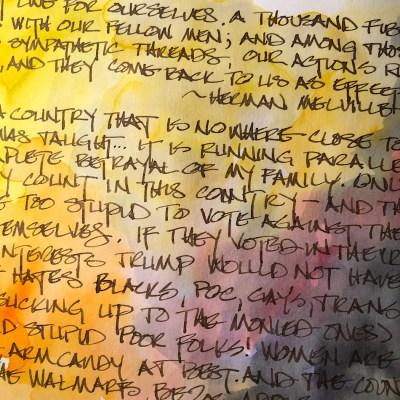 LIVE FOR OURSELVES. A THOUSAND FIBE
WITH OUR FELLOW MEN; AND AMONG THOS
SYMPATHETIC THREADS, OUR ACTIONS R
AND THEY COME BACK TO US AS EFFECT
~HERMAN MELVILLE
A COUNTRY THAT IS NOWHERE CLOSE TO
WAS TAUGHT... IT IS RUNNING PARALLE
PLETE BETRAYAL OF MY FAMILY. ONL
Y COUNT IN THIS COUNTRY - AND TH
TOO STUPID TO VOTE AGAINST THE
EMSELVES. IF THEY VOTED IN THEIR
INTERESTS TRUMP WOULD NOT HAVE
HATES BLACKS, POC, GAYS, TRANS
SUCKING UP TO THE MONIED ONES)
D STUPID POOR FOLKS! WOMEN ARE
ARM CANDY AT BEST. AND THE COUN
WALMARTS